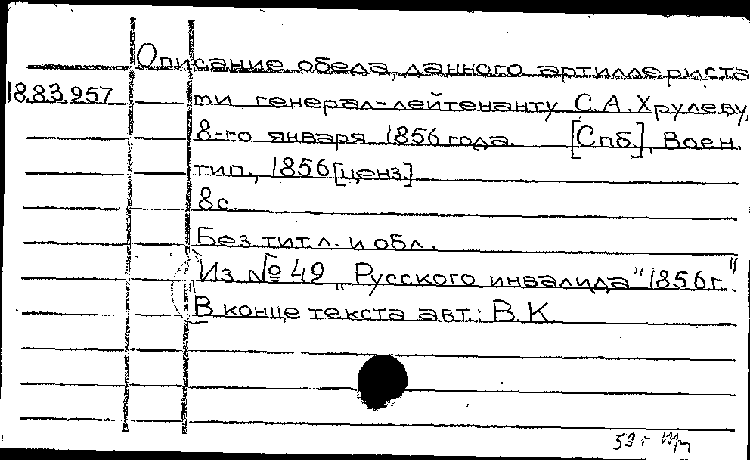 Описание обеда, данного артиллериста
18.83.957 ти генерал-лейтенанту С.А. Хрулеву,
8-го января 1856 года. [Спб], Воен.
тип., 1856 [ценз]
8с.
Без тит. л. и обл.
Из № 49 „Русского инвалида" 1856 г."
В конце текста авт.: В.К.
59 г